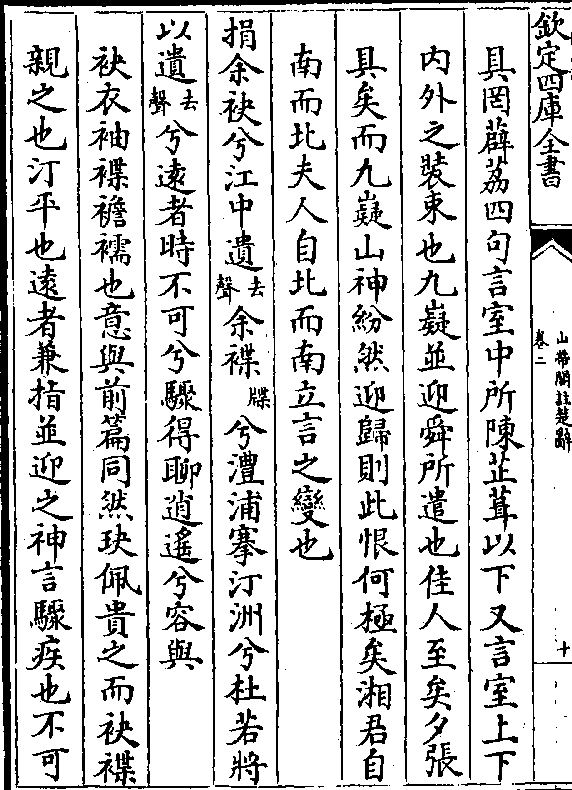 欽定四庫全書
山帶閣註楚辭
卷二
十
具罔薜荔四句言室中所陳芷葺以下又言室上下
內外之裝束也九嶷並迎舜所遣也佳人至矣夕張
具矣而九嶷山神紛然迎歸則此恨何極矣湘君自
南而北夫人自北而南立言之變也
捐余袂兮江中遺去聲余褋牒兮澧浦搴汀洲兮杜若將
以遺去聲兮遠者時不可兮驟得聊逍遙兮容與
袂衣袖褋襜襦也意與前篇同然玦佩貴之而袂褋
親之也汀平也遠者兼指並迎之神言驟疾也不可